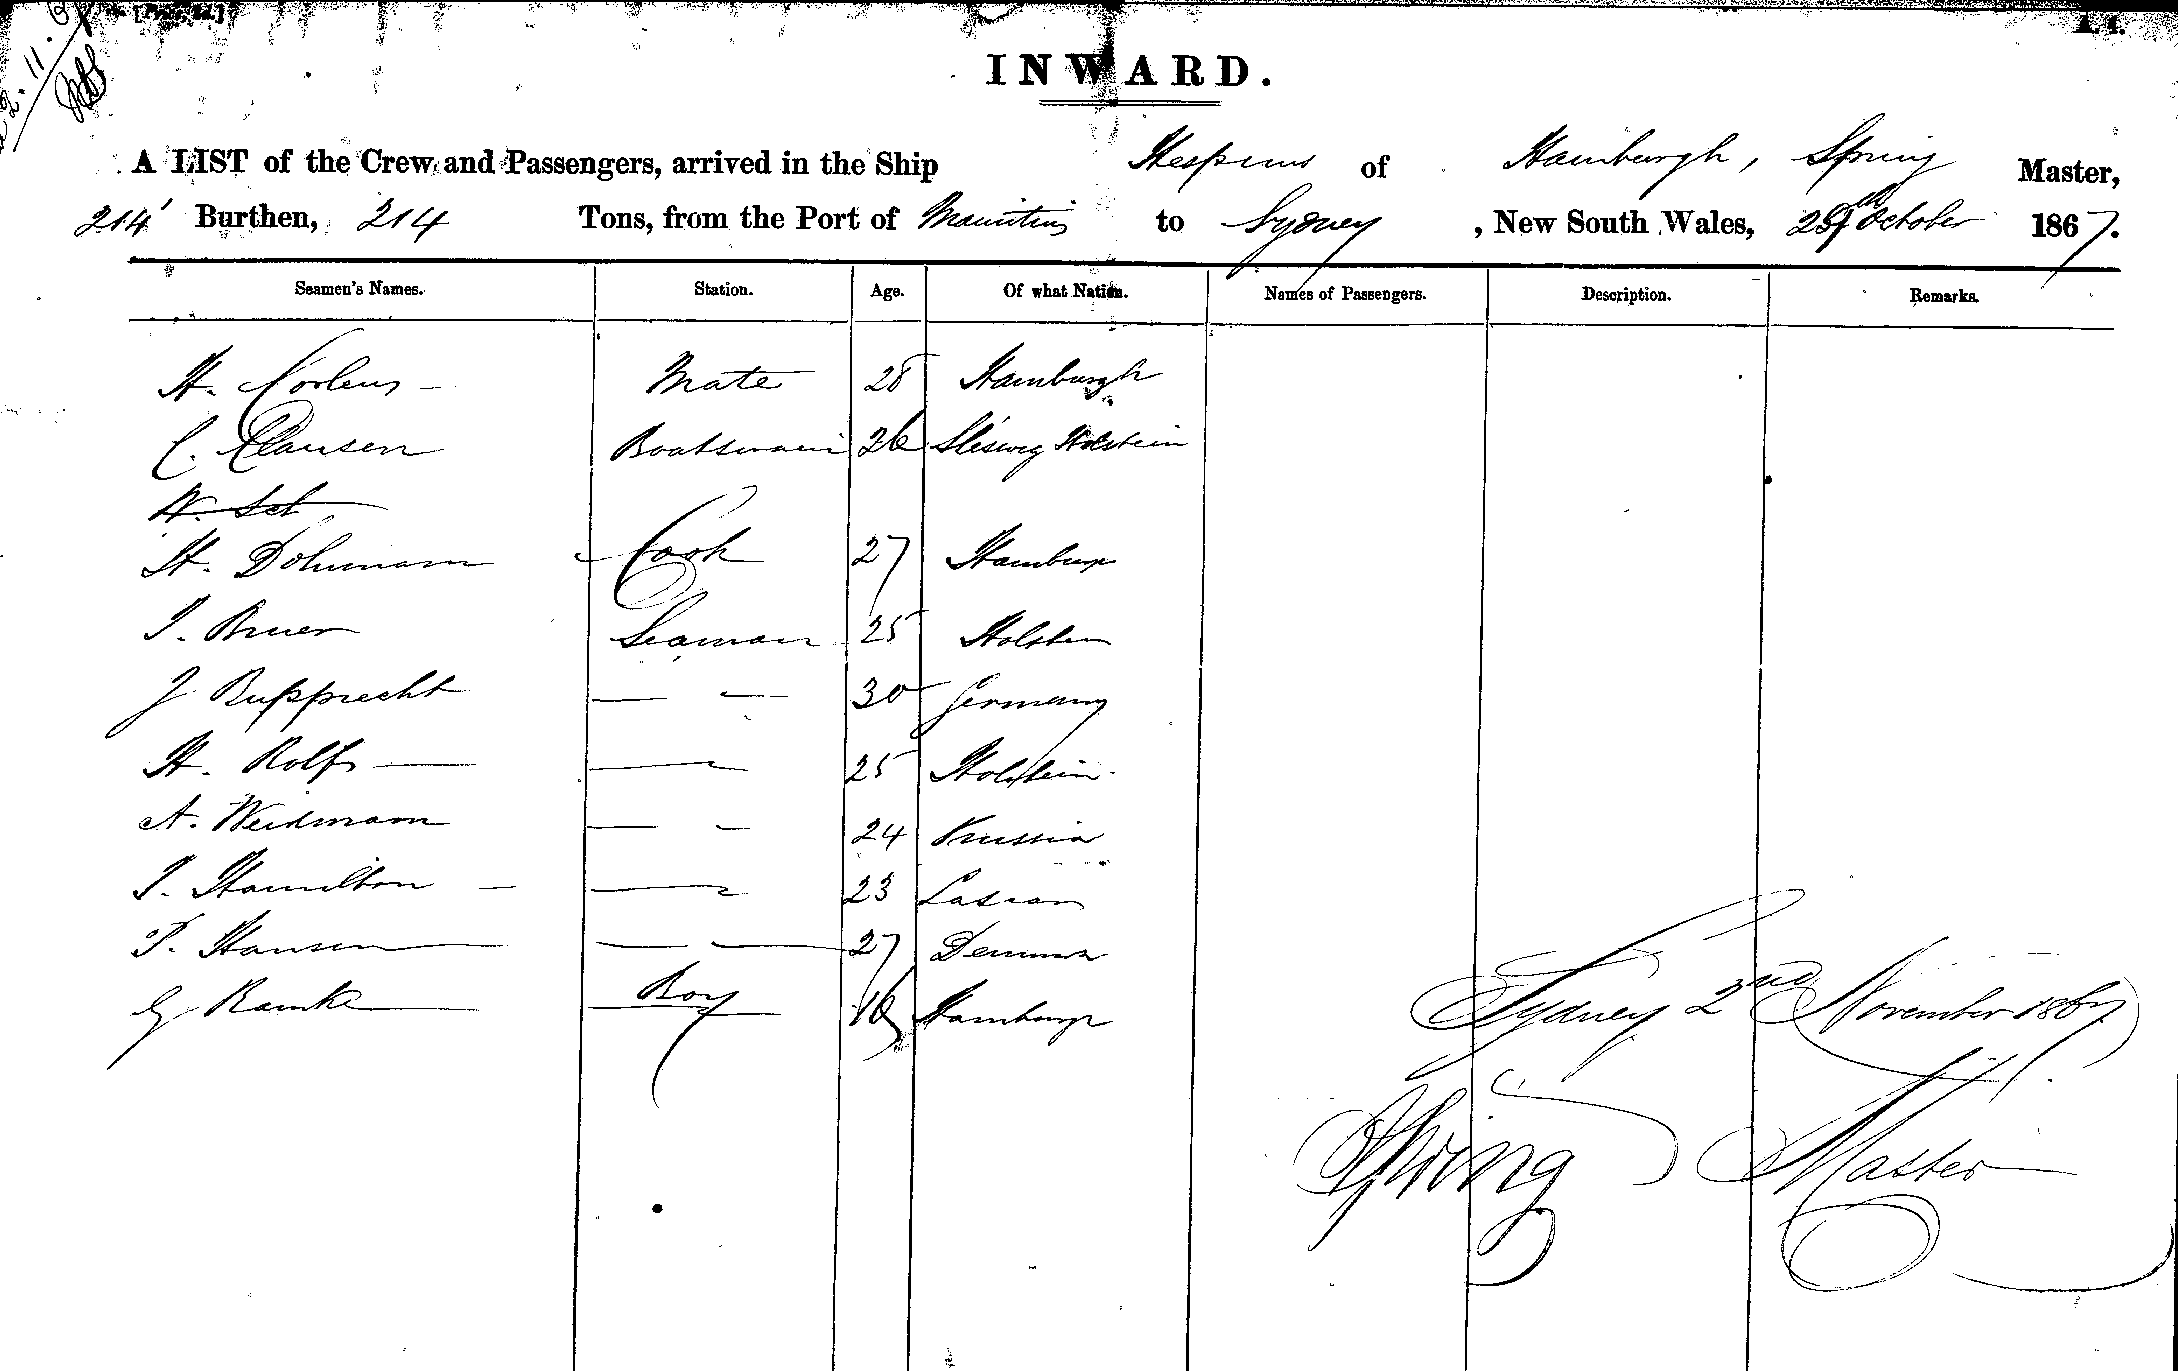 INWARD.
A LIST of the Crew and Passengers, arrived in the Ship Hesperus of Hamburgh, Spring Master,
214 Burthen, 214 Tons, from the Port of Mauritius to Sydney, New South Wales, October 1867.
Seamen's Names. Station. Age. Of what Nation. Names of Passengers. Description. Remarks.
H. Mate 28 Hamburgh
C. Clausen Boatswain 26 Sleswig Holstein
W. Sch
H. Dohrmann Cook 27 Hamburg
J. Bruer Seaman 25 Holstein
J Rupprecht — — 30 Germany
H. Rolfs — — 25 Holstein
A. Weidmann — — 24 Prussia
J. Hamilton — — 23
P. Hansen — — 27
G Ramke Boy 16 Hamburg
Sydney 2nd November 1867
Spring Master